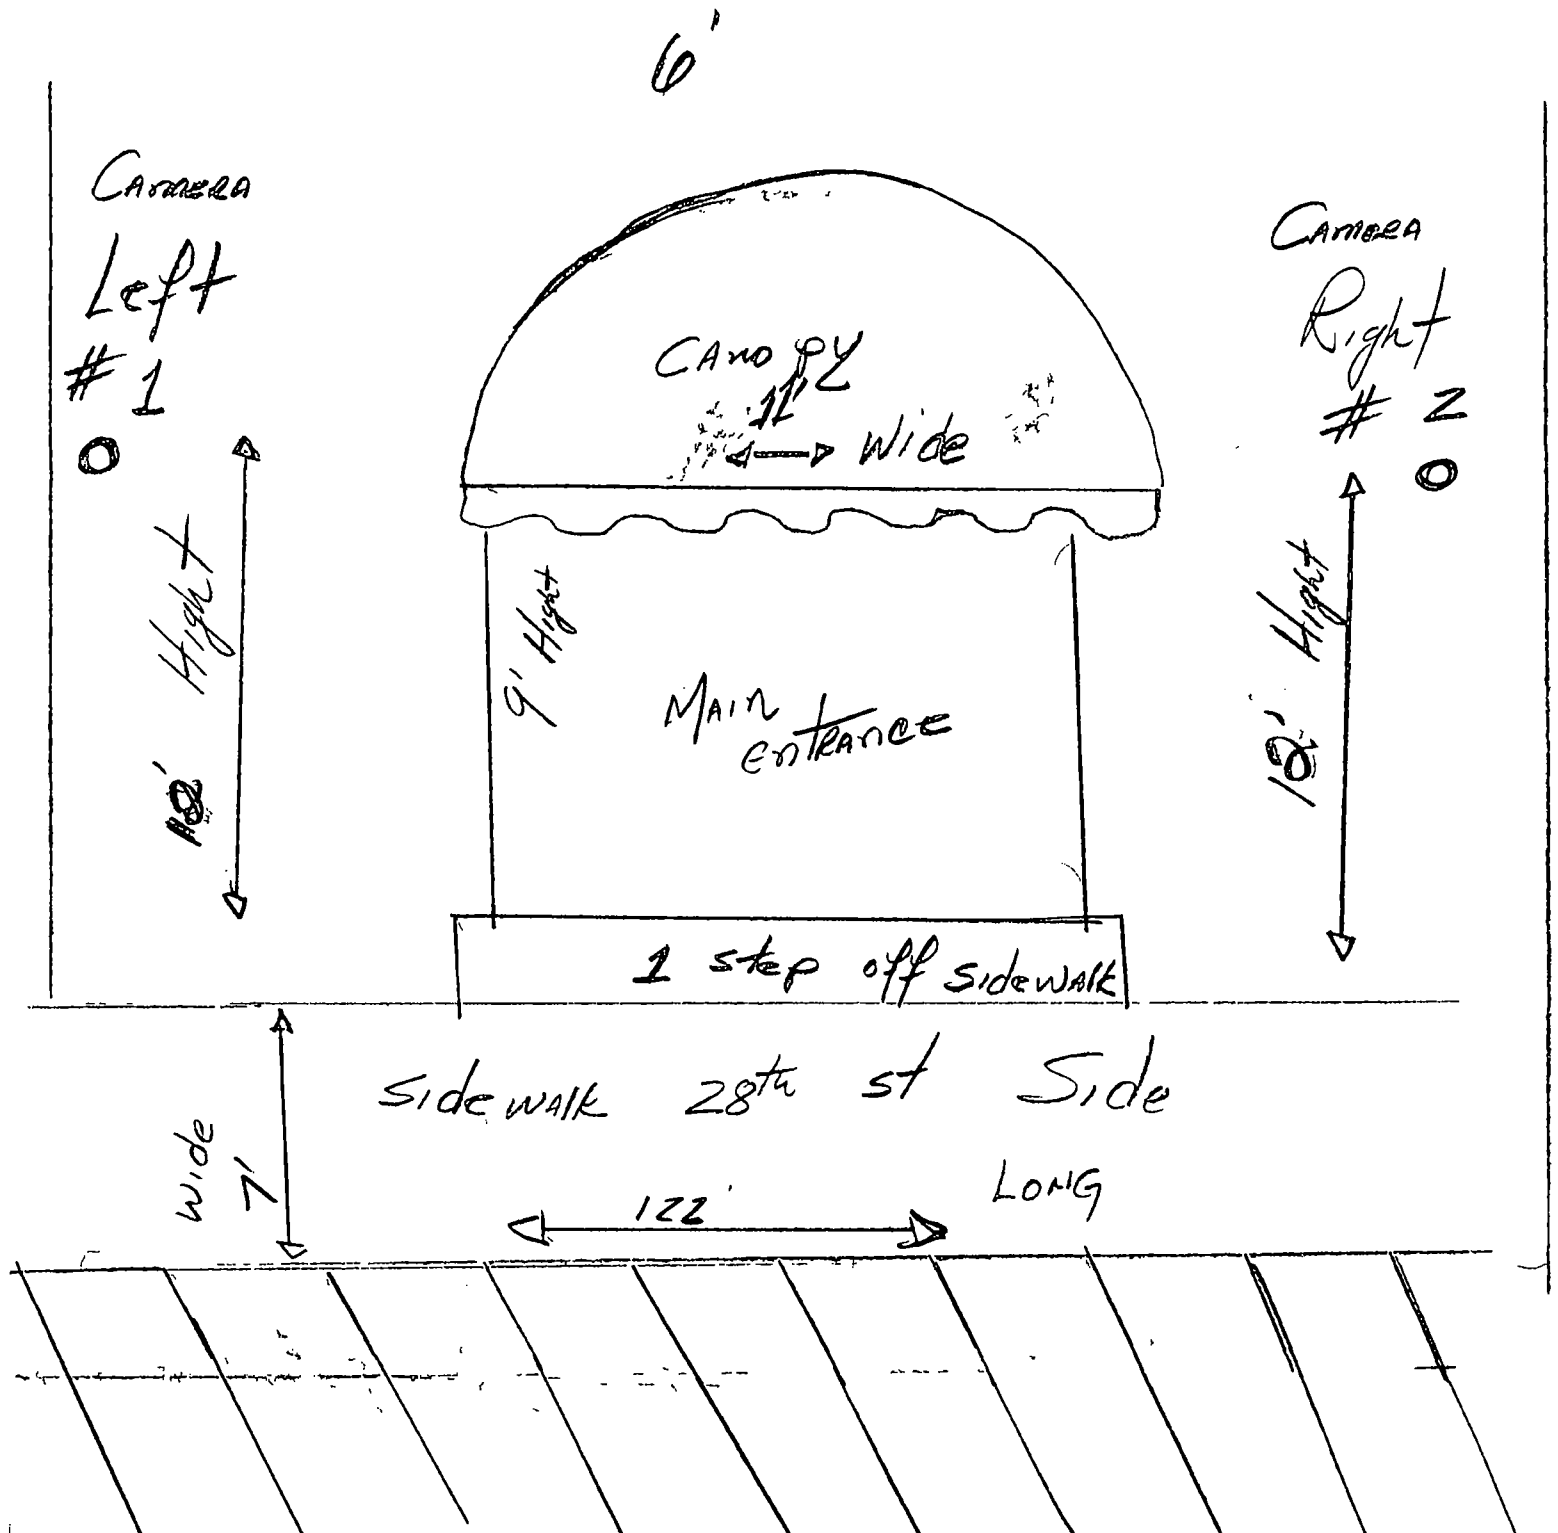 6'
CAMERA
Left
# 1
CAMERA
Right
# 2
CANOPY
11'
Wide
Hight
9' Hight
Hight
12'
MAIN
ENTRANCE
1 step off sidewalk
sidewalk 28th st Side
wide
7'
122'
LONG